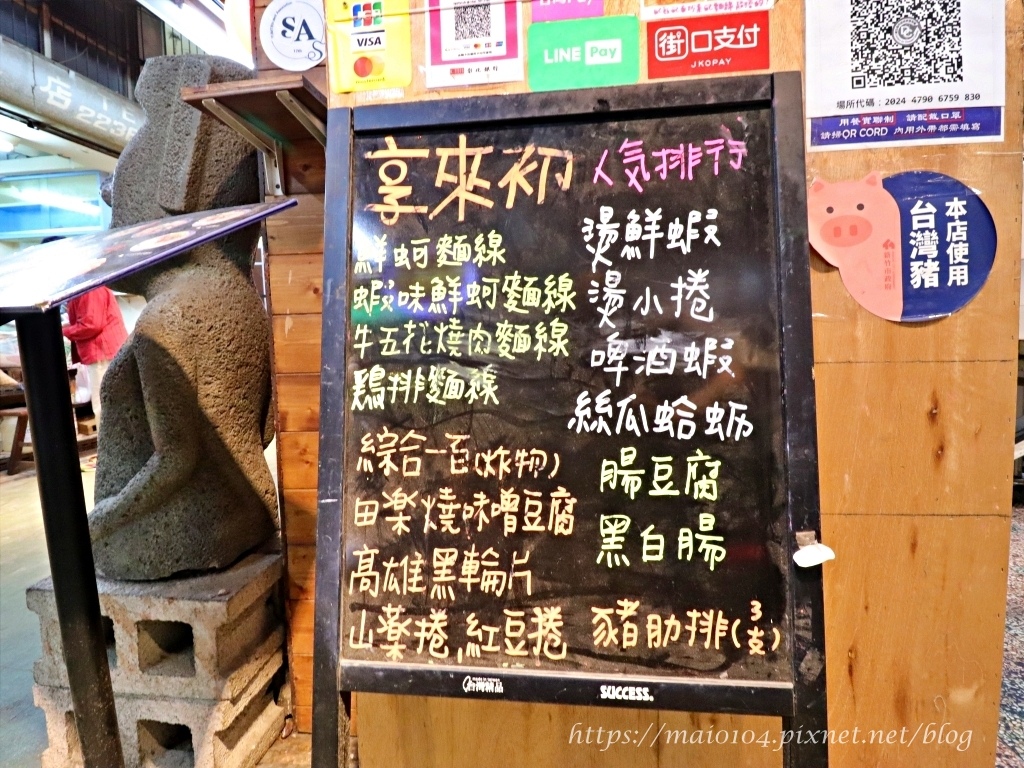 SA
S
JCB
VISA
MasterCard
LINE Pay
街口支付
JKOPAY
場所代碼：2024 4790 6759 830
用餐實聯制 請配戴口罩
請掃QR CORD 內用外帶都需填寫
店
22:3
本店使用
台灣豬
享來初
人気排行
鮮蚵麵線
蝦味鮮蚵麵線
牛五花燒肉麵線
鷄排麵線
綜合一百(炸物)
田楽燒味噌豆腐
高雄黑輪片
山薬捲、紅豆捲
燙鮮蝦
燙小捲
啤酒蝦
絲瓜蛤蛎
腸豆腐
黑白腸
豬肋排(3支)
台灣精品
SUCCESS.
https://maio104.pixnet.net/blog